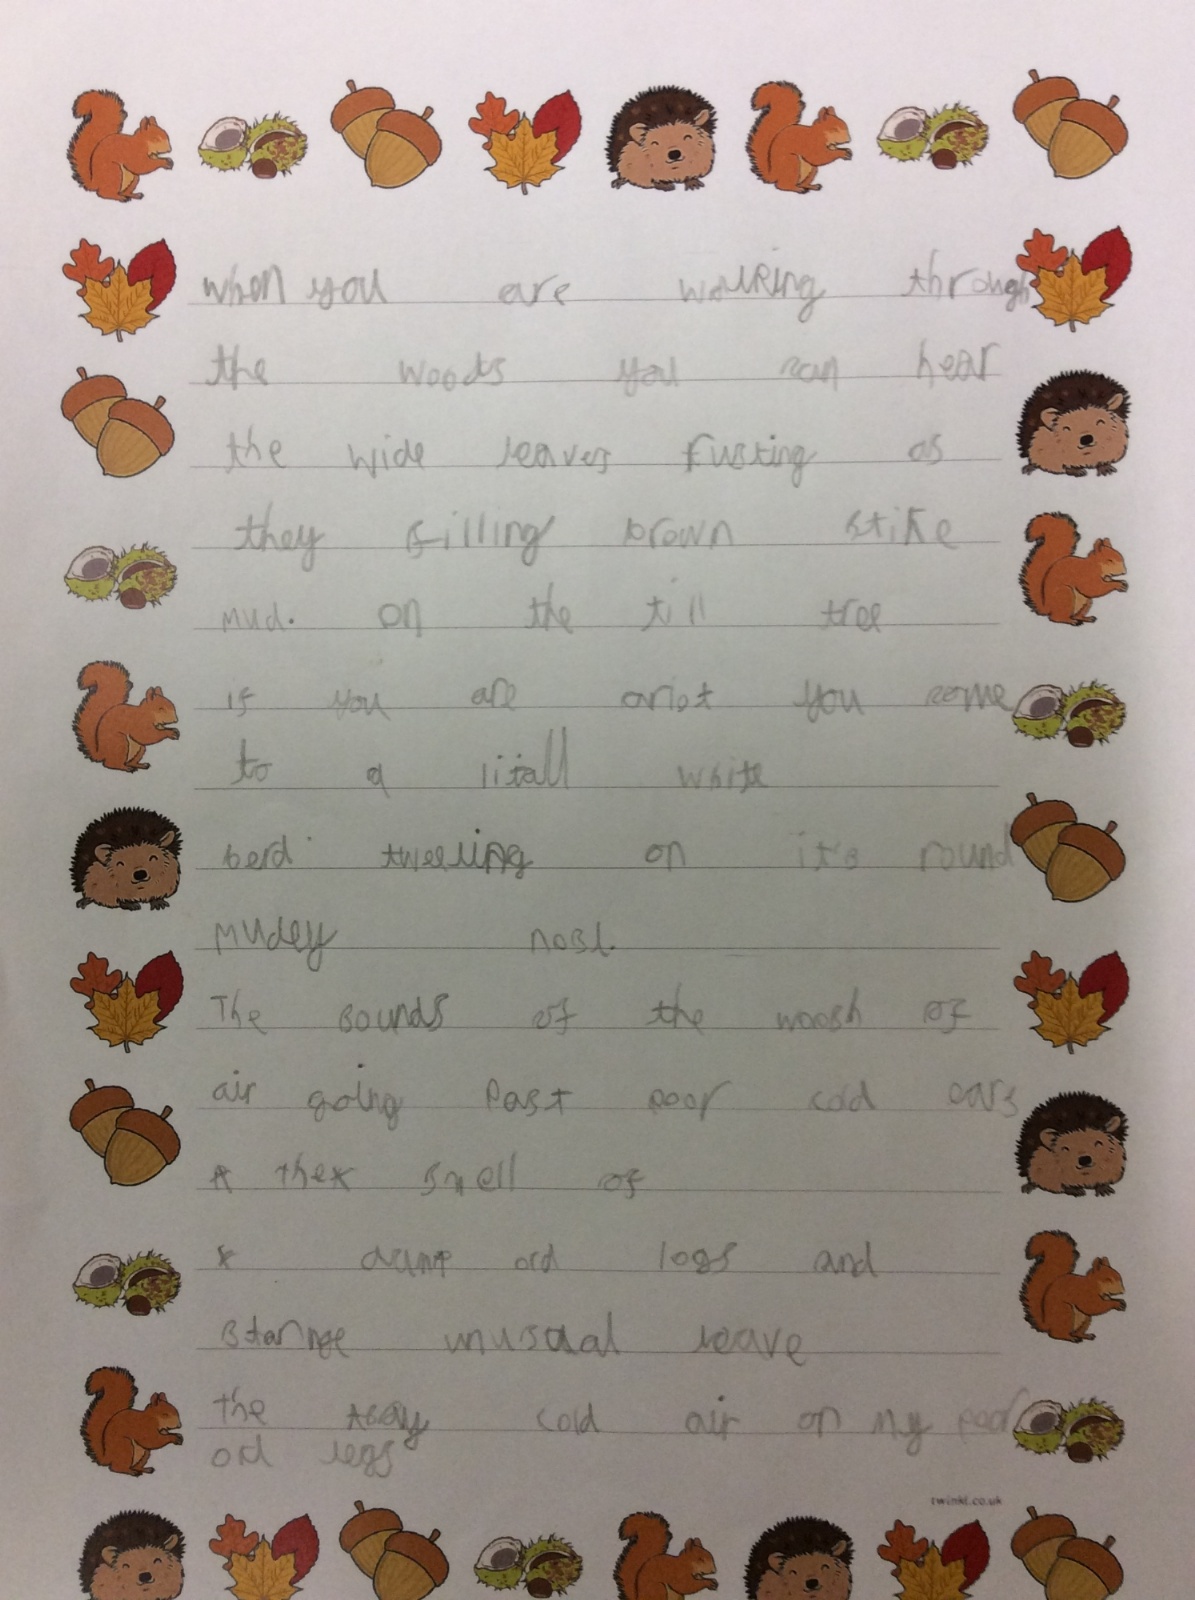 when you are walking through
the woods you can hear
the wide leaves as
they filling brown stike
mud. on the till tree
if you are you come
to a litall white
berd on it's round
mudey
The sounds of the woosh of
air going past poor cold ears
the smell of
damp old logs and
unusaal leave
the cold air on my poor
old legs
twinkl.co.uk